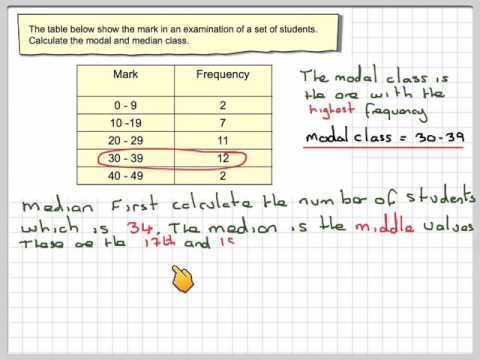 The table below show the mark in an examination of a set of students.
Calculate the modal and median class.
Mark Frequency
0 - 9 2
10 -19 7
20 - 29 11
30 - 39 12
40 - 49 2
The modal class is
the one with the
highest frequency
modal class = 30-39
median First calculate the number of students
which is 34. The median is the middle values
These are the 17th and 1